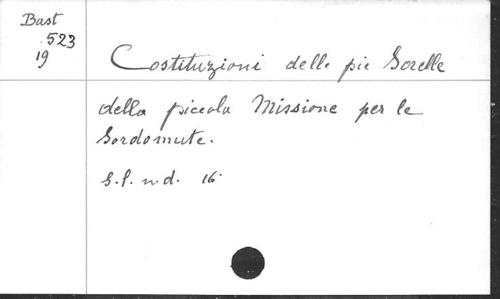 Bast
523
19
Costituzioni delle pie Sorelle
della piccola Missione per le
Sordomute.
S.l. n.d. 16